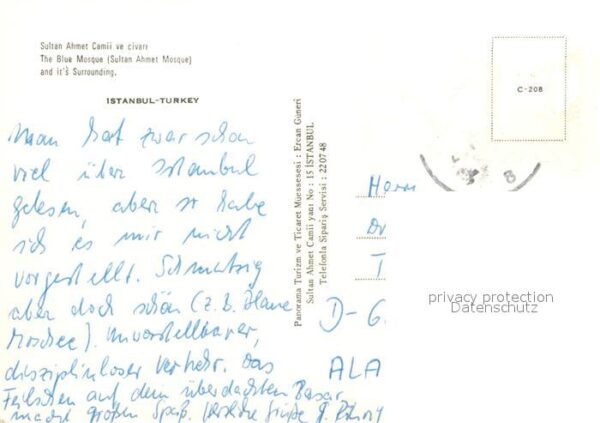 Sultan Ahmet Camii ve civarı
The Blue Mosque (Sultan Ahmet Mosque)
and it's Surrounding.
ISTANBUL-TURKEY
Man hat zwar schon
viel über Istanbul
gelesen, aber so habe
ich es mir nicht
vorgestellt. Schmutzig
aber doch schön (z.B. Blaue
Moschee). Unvorstellbarer,
disziplinloser Verkehr. Das
Feilschen auf dem überdachten Basar
macht großen Spaß. Herzliche Grüße
Panorama Turizm ve Ticaret Muessesesi : Ercan Güneri
Sultan Ahmet Camii yanı No : 15 İSTANBUL
Telefonla Sipariş Servisi : 22 07 48
C-208
8
Herrn
Dr
T
D-6
ALA
privacy protection
Datenschutz